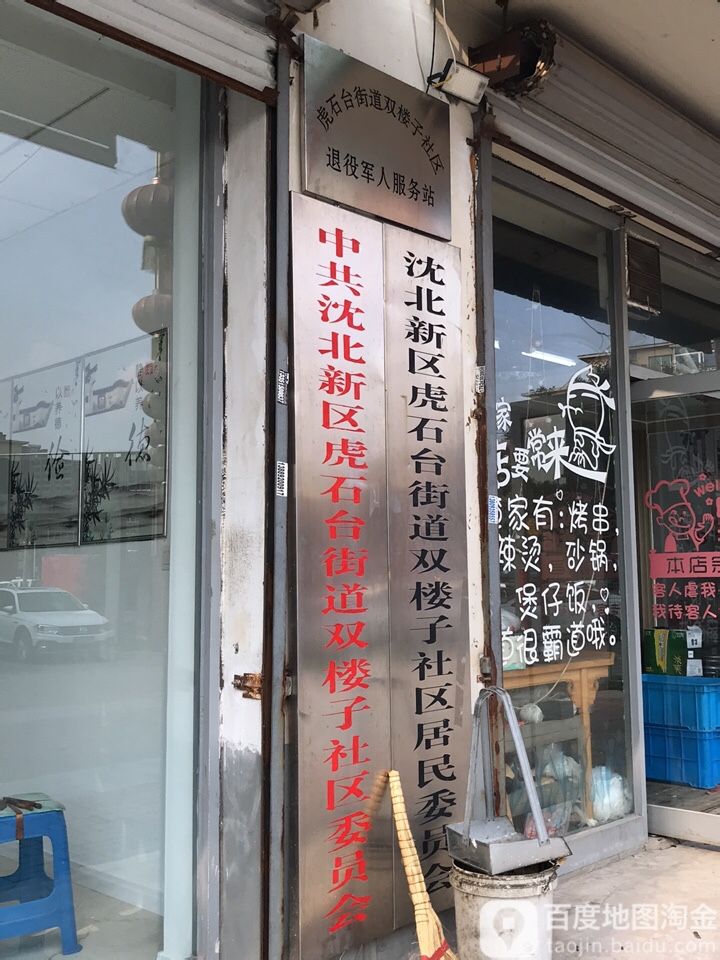 虎石台街道双楼子社区
退役军人服务站
中共沈北新区虎石台街道双楼子社区委员会
沈北新区虎石台街道双楼子社区居民委员会
家
要常来
家有:烤串,
辣烫,砂锅,
煲仔饭,
很霸道哦。
wel
本店宗
客人虐我
我待客人
以养德
俭
德
百度地图淘金
taojin.baidu.com